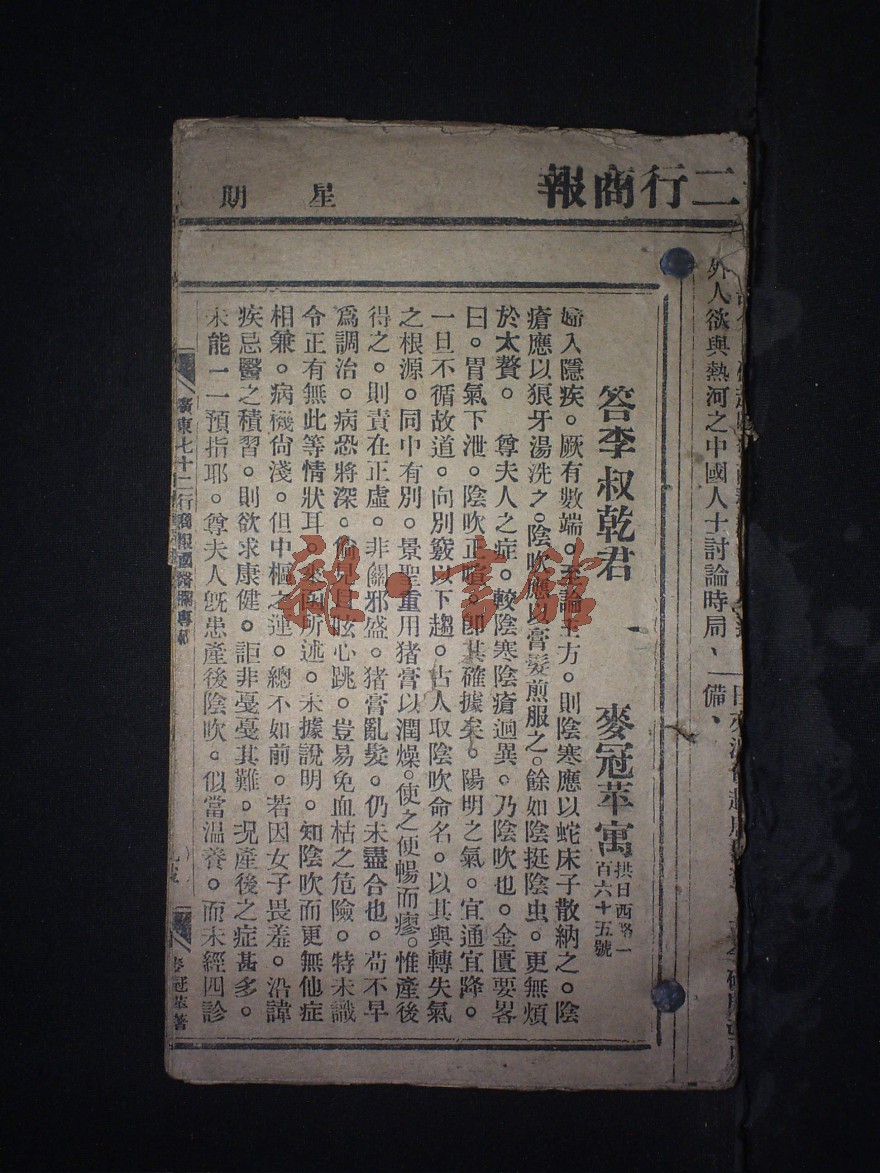 二行商報
星期
外人欲與熱河之中國人士討論時局、
備、
答李叔乾君
麥冠萃寓
拱日西路一
百六十五號
婦人隱疾。厥有數端。至論主方。則陰寒應以蛇床子散納之。陰
瘡應以狼牙湯洗之。陰吹應以膏髮煎服之。餘如陰挺陰虫。更無煩
於太贅。尊夫人之症。較陰寒陰瘡迥異。乃陰吹也。金匱要畧
曰。胃氣下泄。陰吹正喧。卽其確據矣。陽明之氣。宜通宜降。
一旦不循故道。向別竅以下趨。古人取陰吹命名。以其與轉失氣
之根源。同中有別。景聖重用猪膏以潤燥。使之便暢而瘳。惟產後
得之。則責在正虛。非關邪盛。猪膏亂髮。仍未盡合也。苟不早
爲調治。病恐將深。倘見目眩心跳。豈易免血枯之危險。特未識
令正有無此等情狀耳。來函所述。未據說明。知陰吹而更無他症
相兼。病機尙淺。但中樞之運。總不如前。若因女子畏羞。沿諱
疾忌醫之積習。則欲求康健。詎非戞戞其難。况產後之症甚多。
未能一一預指耶。尊夫人旣患產後陰吹。似當溫養。而未經四診
廣東七十二行商報國醫欄專刊
麥冠萃著
雜·書館